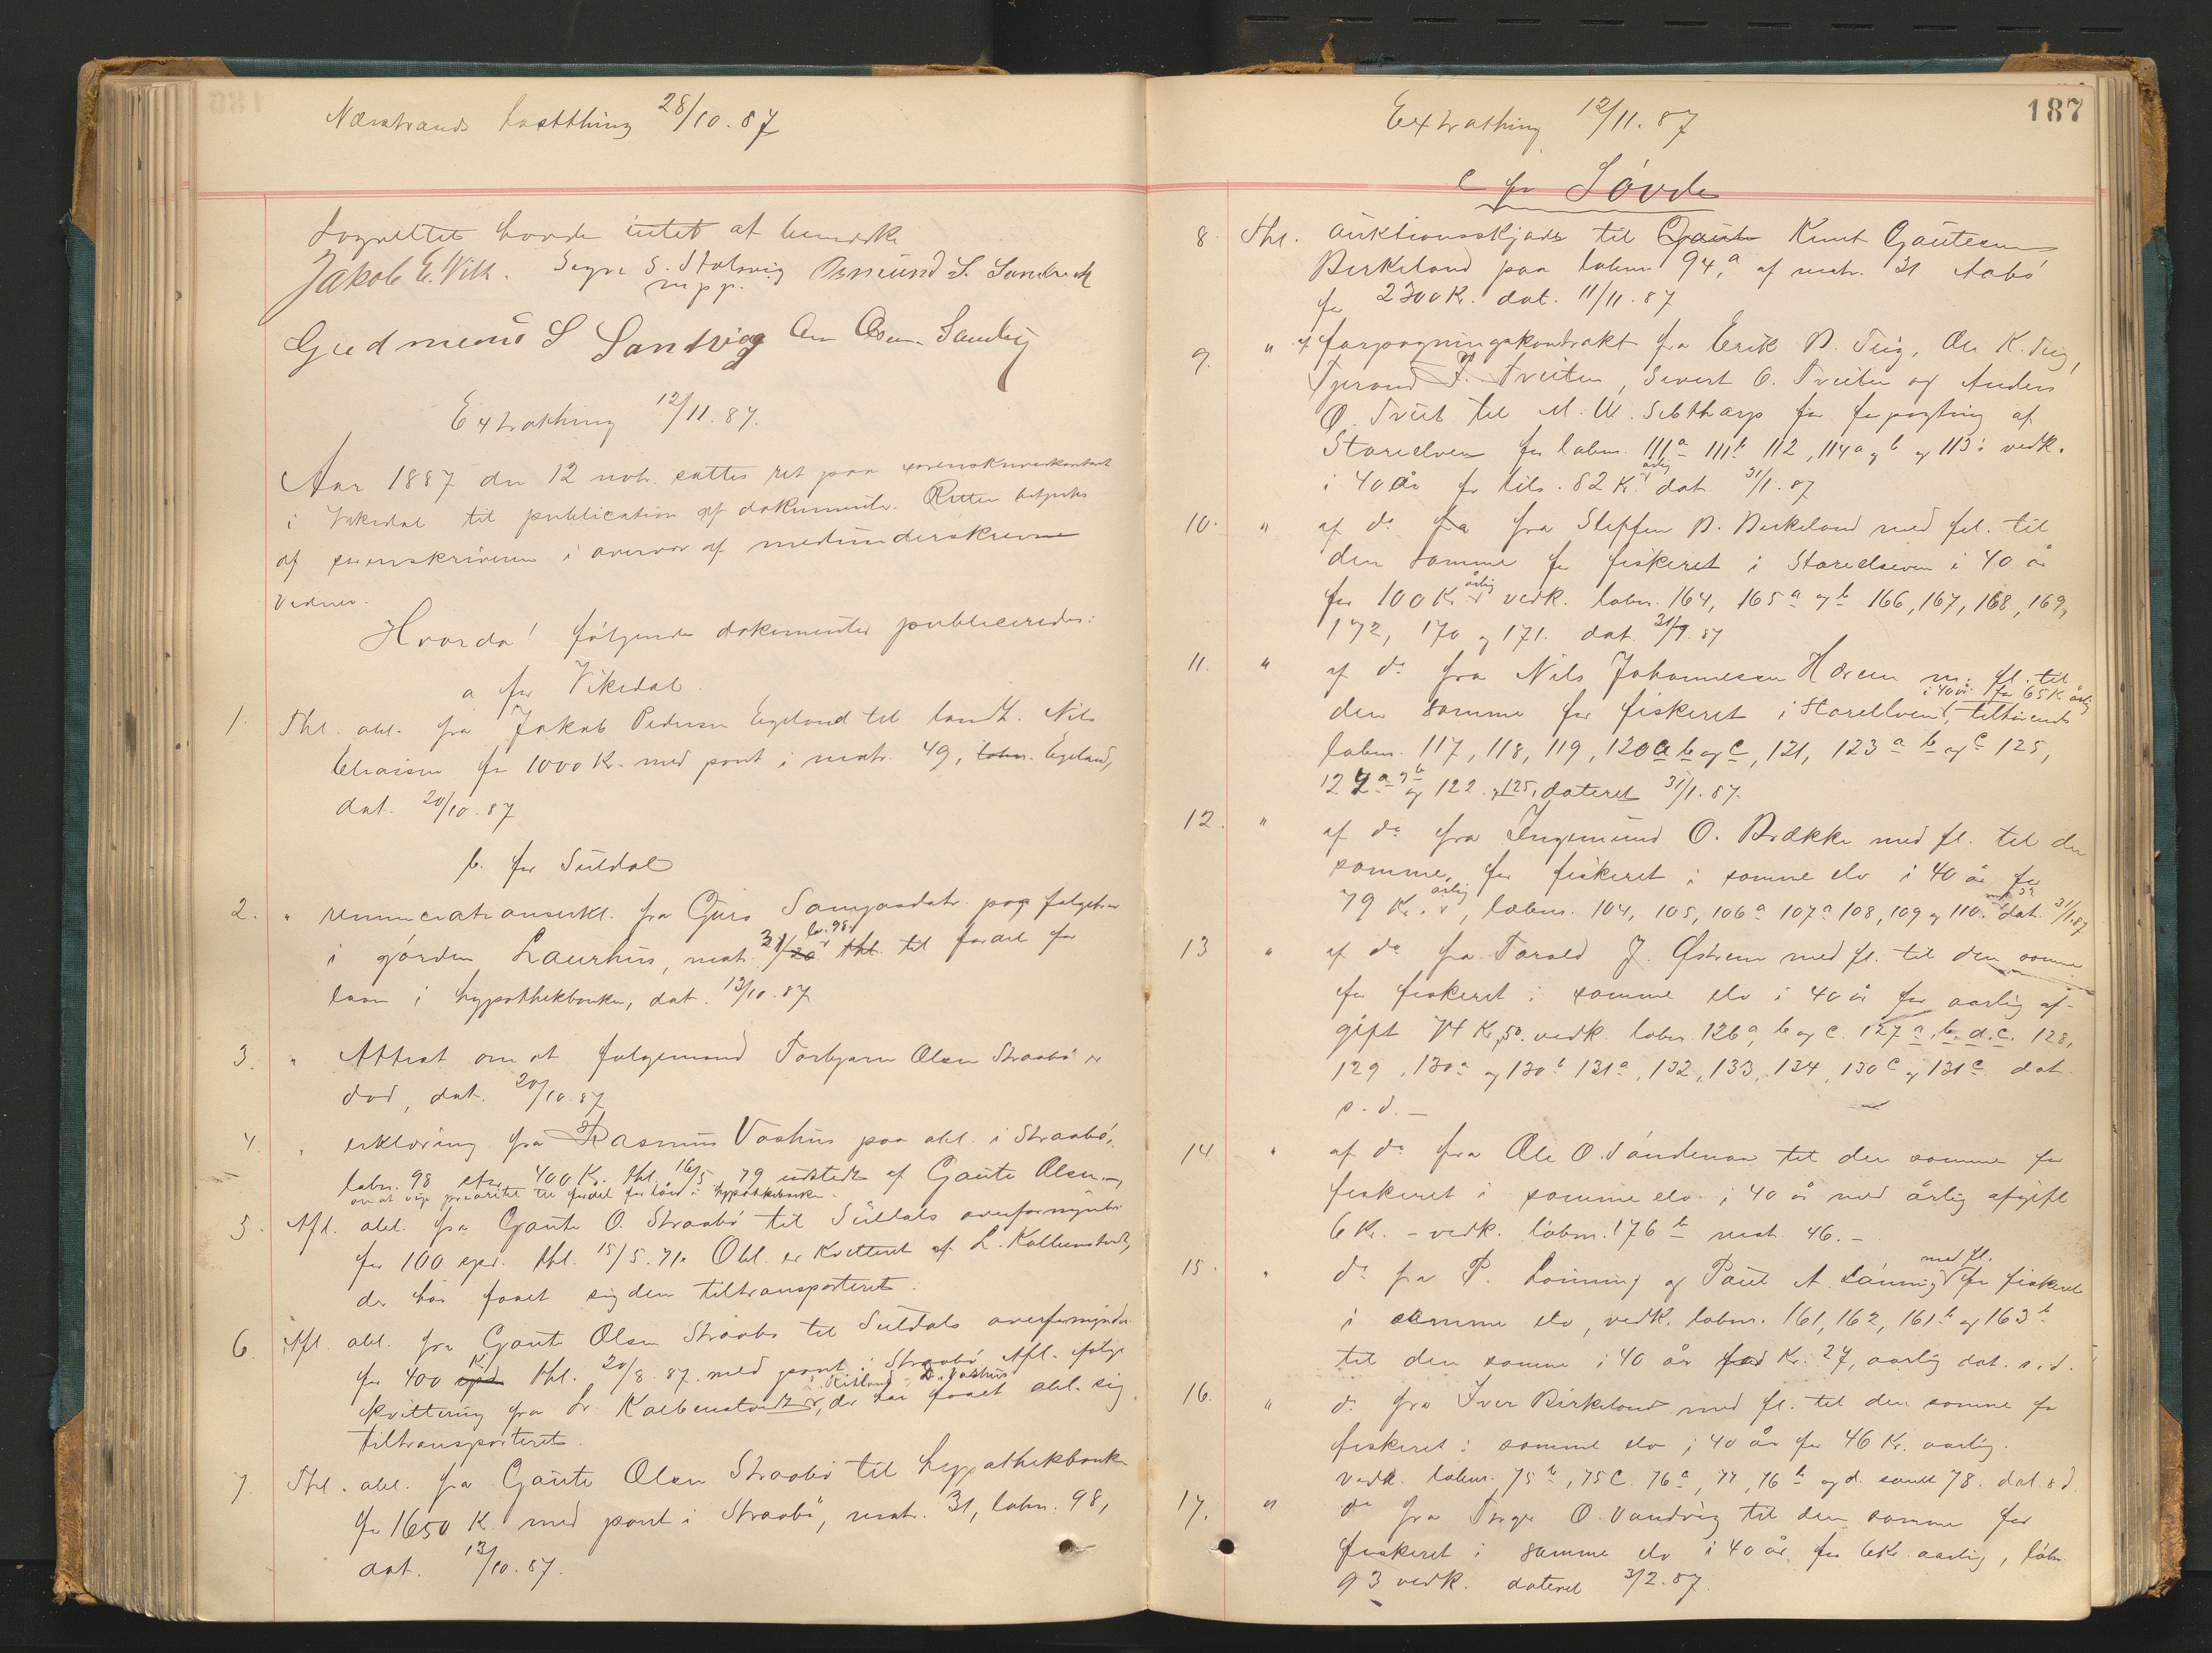 Nærstrands høstthing 28/10. 87
Lagrettet havde intet at bemærke
Jakob E. Vik. Segne S. Stolsvig Osmund S. Sandvik
mpp.
Gudmund S Sandvig
Extrathing 12/11. 87.
Aar 1887 den 12 novbr. sattes ret paa sorenskriverkontoret
i Vikedal til publication af dokumenter. Retten betjentes
af sorenskriveren i overvær af medunderskrevne
vidner.
Hvorda! følgende dokumenter publiceredes:
a for Vikedal.
1. Thl. obl. fra Jakob Pedersen Egeland til landh. Nils
Eliasen for 1000 Kr. med pant i matr. 49, løbn. Egeland,
dat. 20/10. 87
b. for Suldal
2. " renunciationserkl. fra Guro paa folgebrev
lb. 98.
i gården Laurhus, matr. 31/20 thl. til fordel for
laan i hypothekbanken, dat. 13/10. 87
3. " Attest om at folgemand Torbjørn Olsen Straabø er
død, dat. 20/10. 87
4. " erklæring fra Rasmus Vashus paa obl. i Straabø,
løbn. 98 400 Kr. thl. 16/5 79 udstedt af Gaute Olsen,
om at vige prioritet til fordel for lån i hypothekbanken
5. Afl. obl. fra Gaute O. Straabø til Suldals overformynderi
for 100 spd. thl. 15/5. 71. Obl. er kvitteret af L. Kolbenstvedt,
der har faaet sig den tiltransporteret.
6. Afl. obl. fra Gaute Olsen Straabø til Suldals overformynderi
Kr
for 400 spd. thl. 20/8. 87. med pant i Straabø Afl. følge
kvittering fra L. Kolbenstvedt, der har faaet obl. sig
tiltransporteret.
7. Thl. obl. fra Gaute Olsen Straabø til hypothekbanken
for 1650 Kr. med pant i Straabø, matr. 31, løbn. 98,
dat. 13/10. 87.
Extrathing 12/11. 87
187
c for Søvde
8. Thl. auktionsskjøde til Gaute Knut Gautesen
Birkeland paa løbnr 94,a af matr. 31 Aabø
for 2300 Kr. dat. 11/11. 87
9. " af forpagningskontrakt fra Erik B. Teig, Ole K. Teig,
Tjerand T. Tveiten, Sivert O. Tveiten og Anders
O. Tveit til M. W. Sibthorp for forpagtning af
Storelven for løbnr. 111a - 111b 112, 114a og b og 113: vedk.
årlig
i 40 år for tils. 82 Kr. dat. 31/1. 87
10. " af do fra Steffen B. Birkeland med fl. til
den samme for fiskeret i Storelven i 40 år
årlig
for 100 Kr vedk. løbnr. 164, 165a og b 166, 167, 168, 169,
172, 170 og 171. dat. 31/1. 87
11. " af do fra Nils Johannesen Hærem m. fl. til
i 40 år for 65 Kr. årlig
den samme for fiskeret i Storelven, tilhørende
løbnr. 117, 118, 119, 120a b og c, 121, 123a b og c 125,
124a og b og 122. og 125. dateret 31/1. 87.
12. " af do fra Ingemund O. Brække med fl. til den
samme, for fiskeret i samme elv i 40 år for
årlig
79 Kr., løbnr. 104, 105, 106a 107a 108, 109 og 110. dat. 31/1. 87
13 " af do fra Torald J. Østrem med fl. til den samme
for fiskeret i samme elv i 40 år for aarlig af-
gift 74 Kr, 50. vedk. løbnr. 126a, b og c. 127a, b. d. c. 128,
129, 130a og 130b 131a, 132, 133, 134, 130c og 131c dat.
s. d. -
14 " af do fra Ole O. Søndenaa til den samme for
fiskeret i samme elv i 40 år med årlig afgift
6 Kr. - vedk. løbnr. 176b matr. 46. -
med fl.
15. " do fra P. Lønning og Paul A. Lønning for fiskeret
i samme elv, vedk. løbnr. 161, 162, 161b og 163b
til den samme i 40 år for Kr. 27, aarlig dat. s. d.
16. " do fra Iver Birkeland med fl. til den samme for
fiskeret i samme elv i 40 år for 46 Kr. aarlig.
vedk. løbnr. 75b, 75c. 76a, 77, 76b og d. samt 78. dat. s d.
17. " do fra Torger O. Vandvig til den samme for
fiskeret i samme elv i 40 år for 6 Kr. aarlig, løbn.
93 vedk. dateret 3/2. 87.